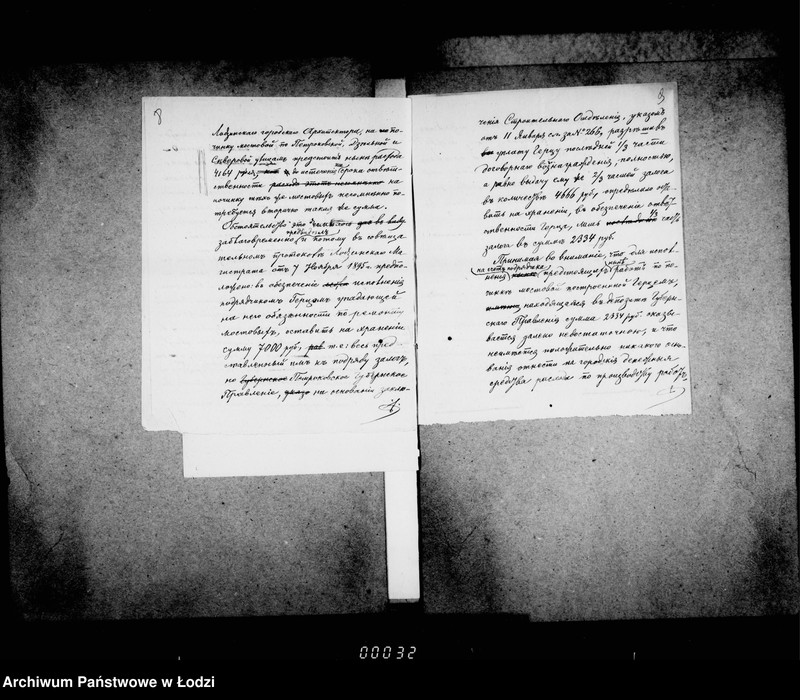 8
Лодзинскаго городскаго Архитектора, на по-
чинку мостовой по Петроковской, Дзельной и
Скверовой улицам предстоитъ нынѣ расходъ
4164 руб., въ теченіи срока отвѣт-
ственности на
починку тѣхъ же мостовыхъ несомнѣнно по-
требуется вторично такая же сумма.
Обстоятельство это
заблаговременно и потому въ совѣща-
тельномъ протоколѣ Лодзинскаго Ма-
гистрата отъ 7 Ноября 1895 г. предпо-
ложено: въ обезпеченіе исполненія
подрядчикомъ Герцомъ упадающей
на него обязанности по ремонту
мостовыхъ, оставить на храненіи
сумму 7000 руб., т. е. весь пред-
ставленный имъ къ подряду залогъ,
но Петроковское Губернское
Правленіе, на основаніи заклю-
ченія Строительнаго Отдѣленія, указомъ
отъ 11 Января с.г. за № 266, разрѣшивъ
уплату Герцу послѣдней 1/3 части
договорнаго вознагражденія, полностію,
а равно выдачу ему же 2/3 частей залога
въ количествѣ 4666 руб., опредѣлило оста-
вить на храненіи, въ обезпеченіе отвѣт-
ственности Герца, лишь 1/3 сего
залога въ суммѣ 2334 руб.
Принимая во вниманіе, что для испол-
ненія на счетъ подрядчика предстоящихъ работъ по по-
чинкѣ мостовой построенной Герцомъ,
находящаяся въ депозитѣ Губерн-
скаго Правленія сумма 2334 руб. оказы-
вается далеко недостаточною, и что
неимѣется положительно никакого осно-
ванія отнести на городскія денежныя
средства расходъ по производству работъ,
00032
Archiwum Państwowe w Łodzi